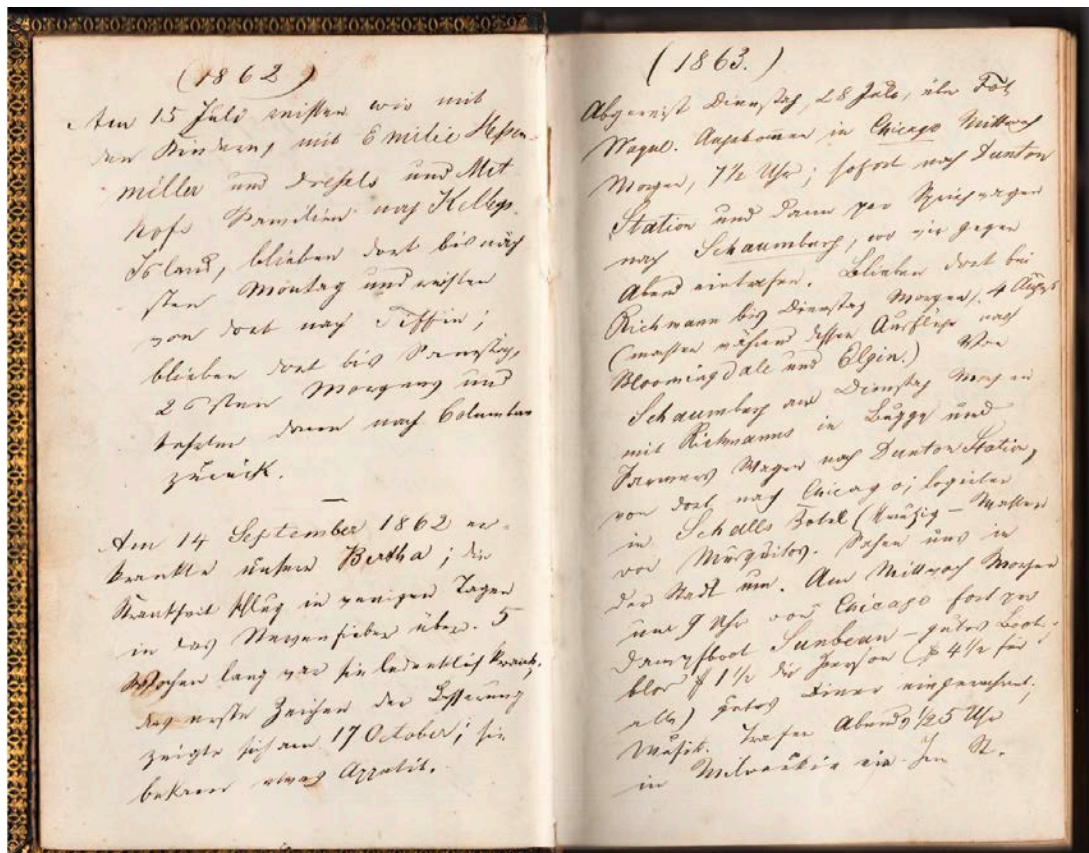 (1862)
Am 15 Juli reisten wir mit
den Kindern, mit Emilie Hessen-
miller und Dresels und Mit
hofs Familien nach Kelleys
Island, blieben dort bis näch
sten Montag und reisten
von dort nach Tiffin;
blieben dort bis Samstag,
26sten Morgens und
kehrten dann nach Columbus
zurück.
Am 14 September 1862 er-
krankte unsere Bertha; die
Krankheit schlug in wenigen Tagen
in das Nervenfieber über. 5
Wochen lang war sie bedenklich krank;
das erste Zeichen der Besserung
zeigte sich am 17 October; sie
bekam etwas Appetit.
(1863.)
Abgereist Dienstag, 28 Juli, über Fort
Wayne. Angekommen in Chicago Mittwoch
Morgen, 7½ Uhr; sofort nach Dunton
Station und dann per
nach Schaumburg, wo wir gegen
Abend eintrafen. Blieben dort bei
Richmann bis Dienstag Morgen, 4 August
(machten während dessen Ausflüge nach
Bloomingdale und Elgin.) Von
Schaumburg am Dienstag Morgen
mit Richmanns in Buggy und
Farmers Wagen nach Dunton Station,
von dort nach Chicago; logirten
in Schalls Hotel ( –
von Musquitos. Sahen uns in
der Stadt um. Am Mittwoch Morgen
um 9 Uhr von Chicago fort per
Dampfboot Sunbeam – gutes Boot.
blos $ 1½ die Person ($ 4½ für
alle) gutes Diner eingerechnet;
Musik. Trafen Abends ½5 Uhr
in Milwaukie ein. Im St.